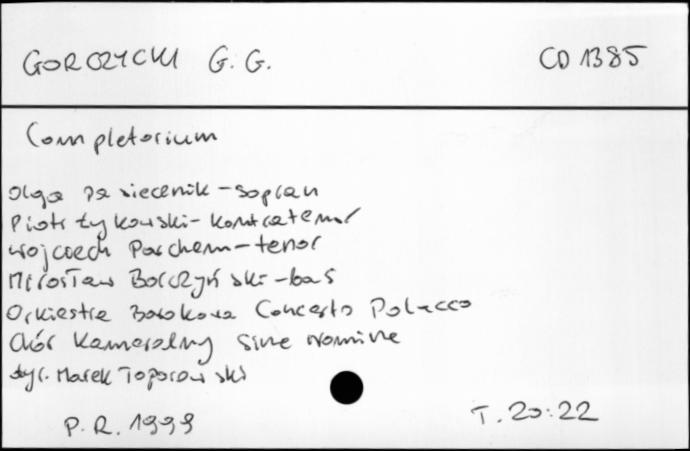 GORCZYCKI G. G. CD 1385
Completorium
Olga Pasiecznik - sopran
Piotr Łykowski - kontratenor
Wojciech Parchem - tenor
Mirosław Borczyński - bas
Orkiestra Barokowa Concerto Polacco
Chór Kameralny Sine Nomine
dyr. Marek Toporowski
P.R. 1999 T. 20:22